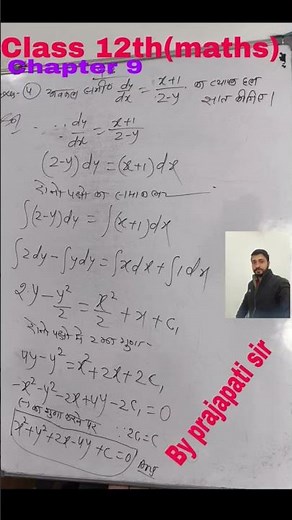 Class 12th(maths)
Chapter 9
(4) अवकल समी० dy/dx = x+1/2-y का व्यापक हल
ज्ञात कीजिए।
∵ dy/dx = x+1/2-y
(2-y)dy = (x+1)dx
दोनो पक्षो का समाकलन
∫(2-y)dy = ∫(x+1)dx
∫2dy - ∫ydy = ∫xdx + ∫1dx
2y - y²/2 = x²/2 + x + c₁
दोनो पक्षो में 2 का गुणा
4y - y² = x² + 2x + 2c₁
-x² - y² - 2x + 4y - 2c₁ = 0
(-) का गुणा करने पर ∵ 2c₁ = c
x² + y² + 2x - 4y + c = 0 Ans
By prajapati sir